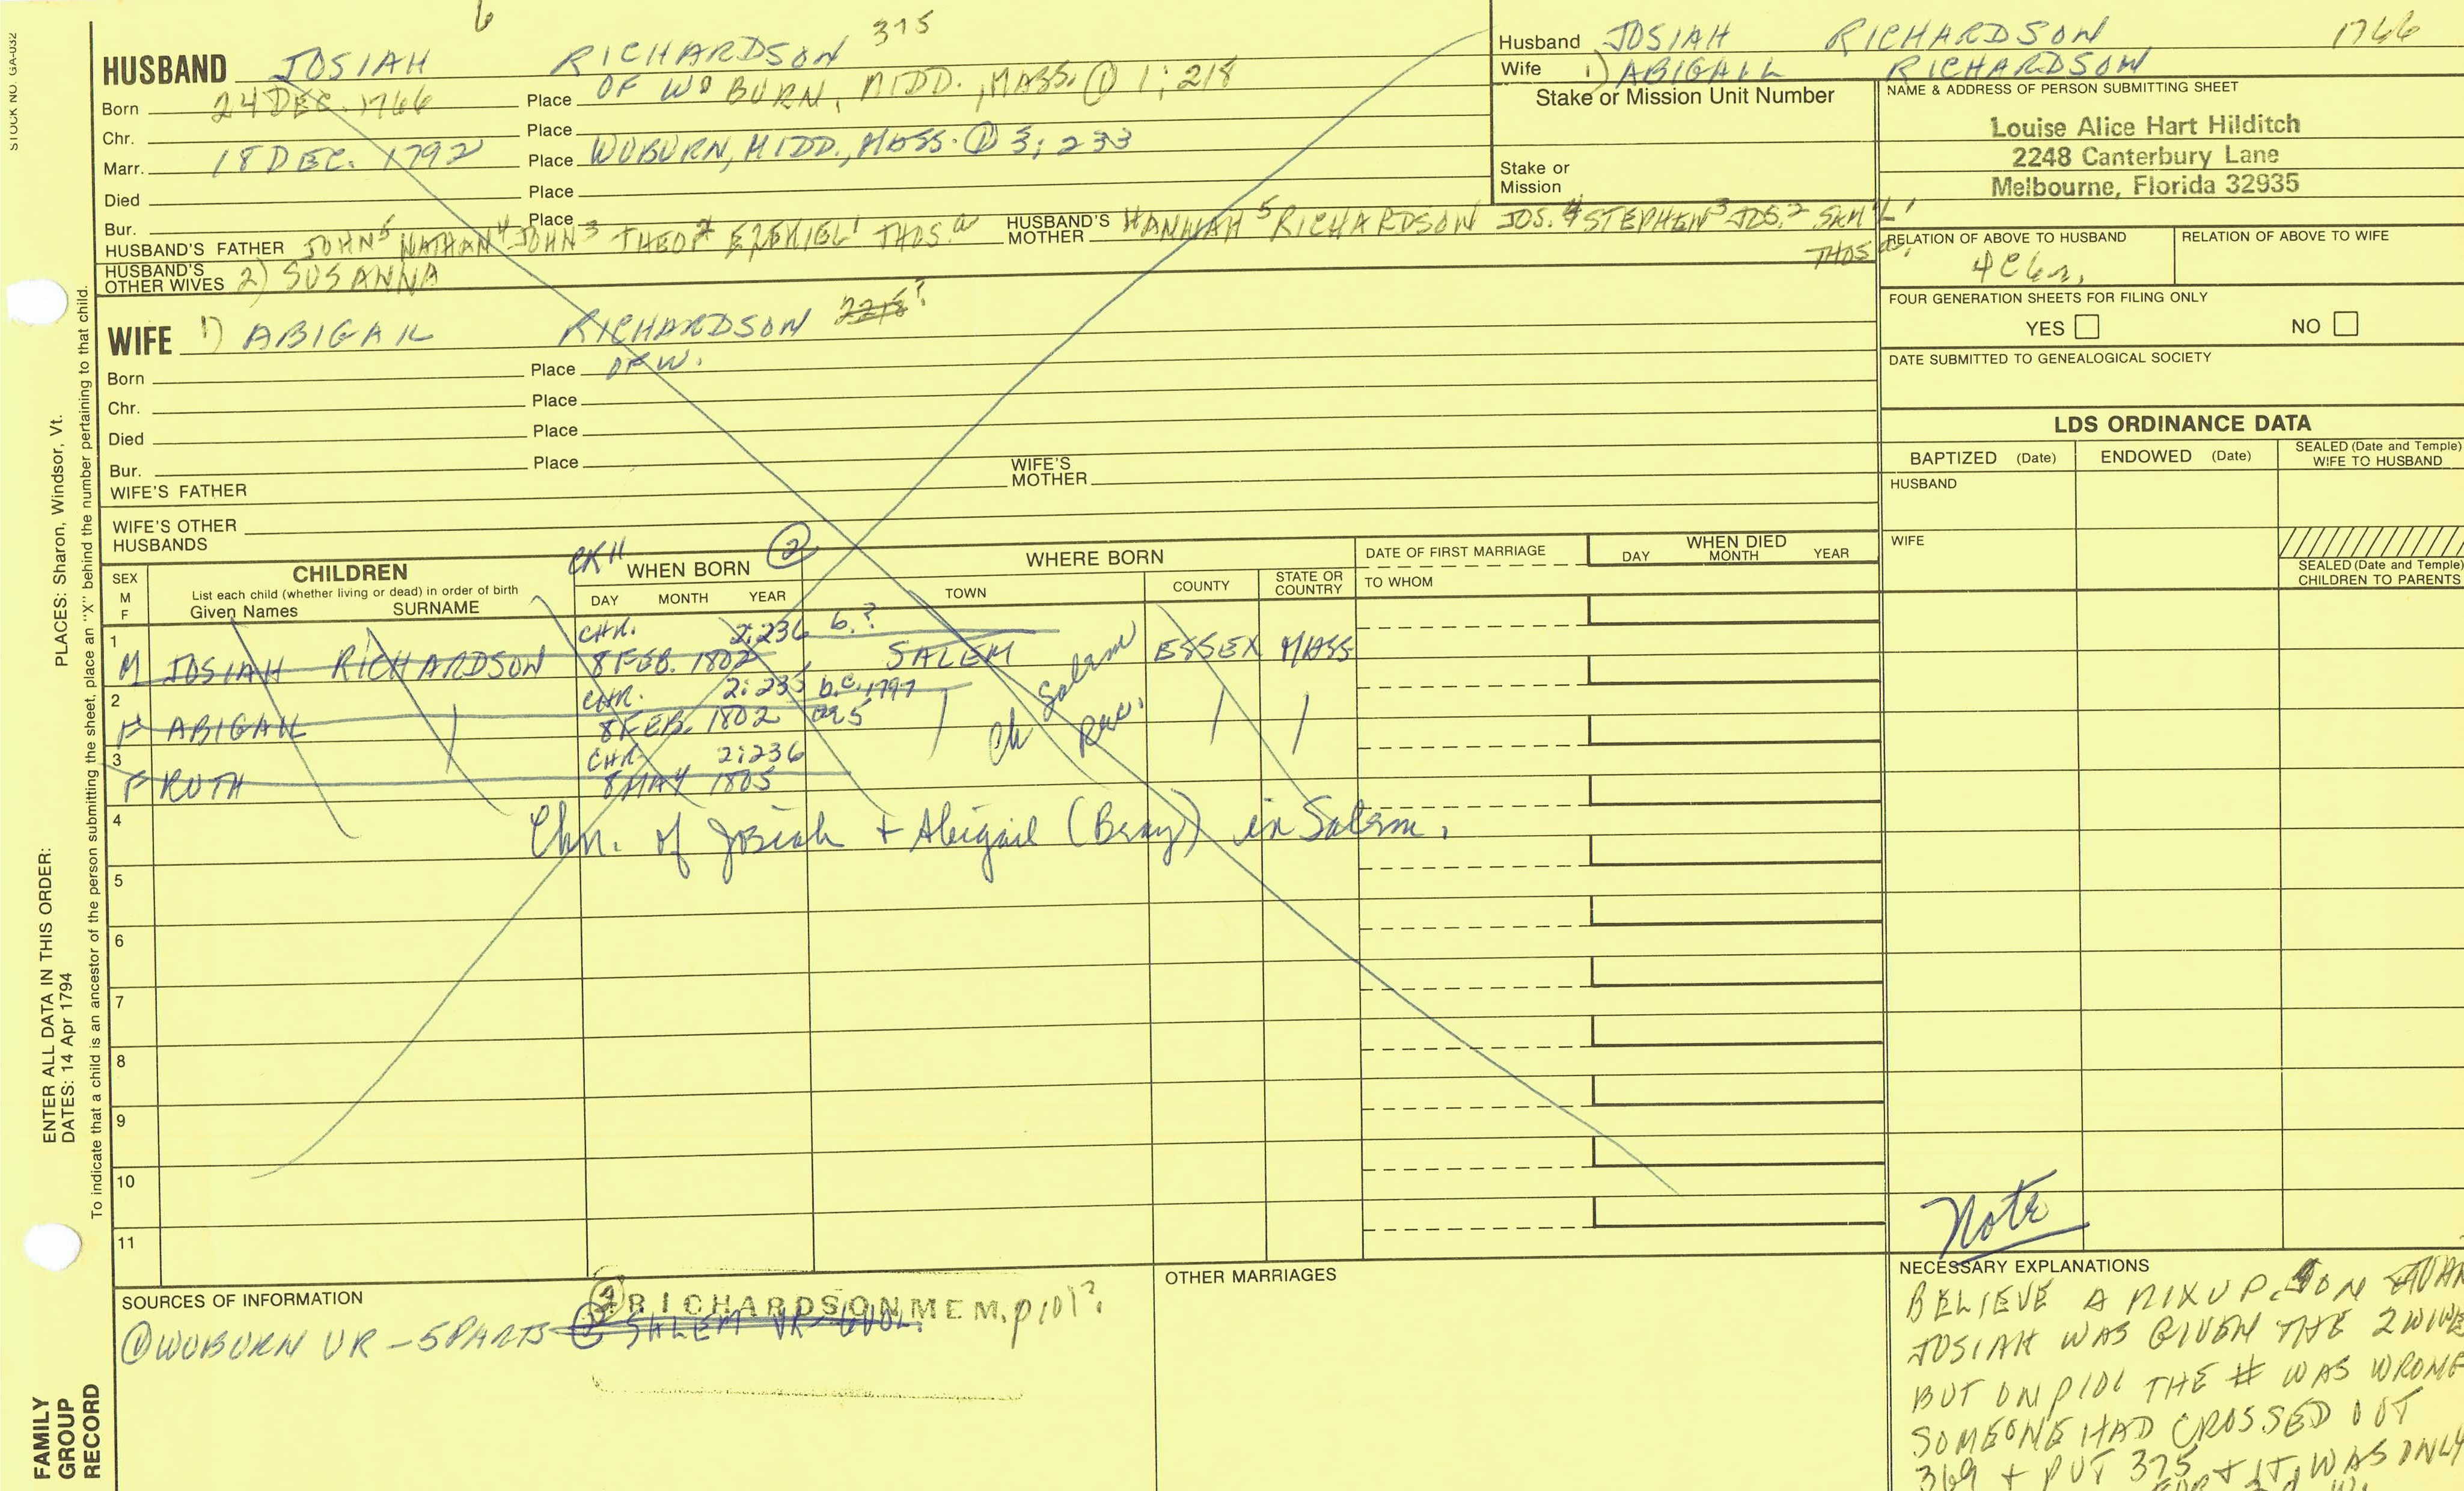 STOCK NO. GA-032
6
HUSBAND JOSIAH RICHARDSON 375
Born 24 DEC. 1766 Place OF WOBURN, MIDD., MASS. ① 1; 218
Chr. Place
Marr. 18 DEC. 1792 Place WOBURN, MIDD., MASS. ① 3; 233
Died Place
Bur. Place
HUSBAND'S FATHER JOHN⁵ NATHAN⁴ JOHN³ THEOP² EZEKIEL¹ THOS.ᵃ HUSBAND'S MOTHER HANNAH⁵ RICHARDSON JOS.⁴ STEPHEN³ JOS.² SAM'L¹
THOSᵃ.
HUSBAND'S OTHER WIVES 2) SUSANNA
WIFE 1) ABIGAIL RICHARDSON ?
Born Place OF W.
Chr. Place
Died Place
Bur. Place
WIFE'S FATHER WIFE'S MOTHER
WIFE'S OTHER HUSBANDS
Husband JOSIAH RICHARDSON 1766
Wife 1) ABIGAIL RICHARDSON
Stake or Mission Unit Number
Stake or Mission
NAME & ADDRESS OF PERSON SUBMITTING SHEET
Louise Alice Hart Hilditch
2248 Canterbury Lane
Melbourne, Florida 32935
RELATION OF ABOVE TO HUSBAND RELATION OF ABOVE TO WIFE
FOUR GENERATION SHEETS FOR FILING ONLY
YES NO
DATE SUBMITTED TO GENEALOGICAL SOCIETY
LDS ORDINANCE DATA
BAPTIZED (Date) ENDOWED (Date) SEALED (Date and Temple) WIFE TO HUSBAND
HUSBAND
WIFE
SEALED (Date and Temple) CHILDREN TO PARENTS
SEX M F
CHILDREN
List each child (whether living or dead) in order of birth
Given Names SURNAME
②
WHEN BORN
DAY MONTH YEAR
WHERE BORN
TOWN COUNTY STATE OR COUNTRY
DATE OF FIRST MARRIAGE
TO WHOM
WHEN DIED
DAY MONTH YEAR
1 CHR. 2:236 b.?
M JOSIAH RICHARDSON 8 FEB. 1802 SALEM ESSEX MASS
2 CHR. 2:235 b.c. 1797
F ABIGAIL 8 FEB. 1802
Ch Salem Rec.
3 CHR. 2:236
F RUTH 8 MAY 1805
4 Chn. of Josiah + Abigail (Bray) in Salem.
5
6
7
8
9
10
11
SOURCES OF INFORMATION
① WOBURN VR - 5 PARTS ② SALEM VR - 6 VOL.
② RICHARDSON MEM. p101?
OTHER MARRIAGES
Note
NECESSARY EXPLANATIONS
BELIEVE A MIXUP. ON
JOSIAH WAS GIVEN THE 2 WIVES
BUT ON P101 THE # WAS WRONG
SOMEONE HAD CROSSED OUT
369 + PUT 375 + IT WAS ONLY
PLACES: Sharon, Windsor, Vt.
ENTER ALL DATA IN THIS ORDER:
DATES: 14 Apr 1794
To indicate that a child is an ancestor of the person submitting the sheet, place an "X" behind the number pertaining to that child.
FAMILY
GROUP
RECORD